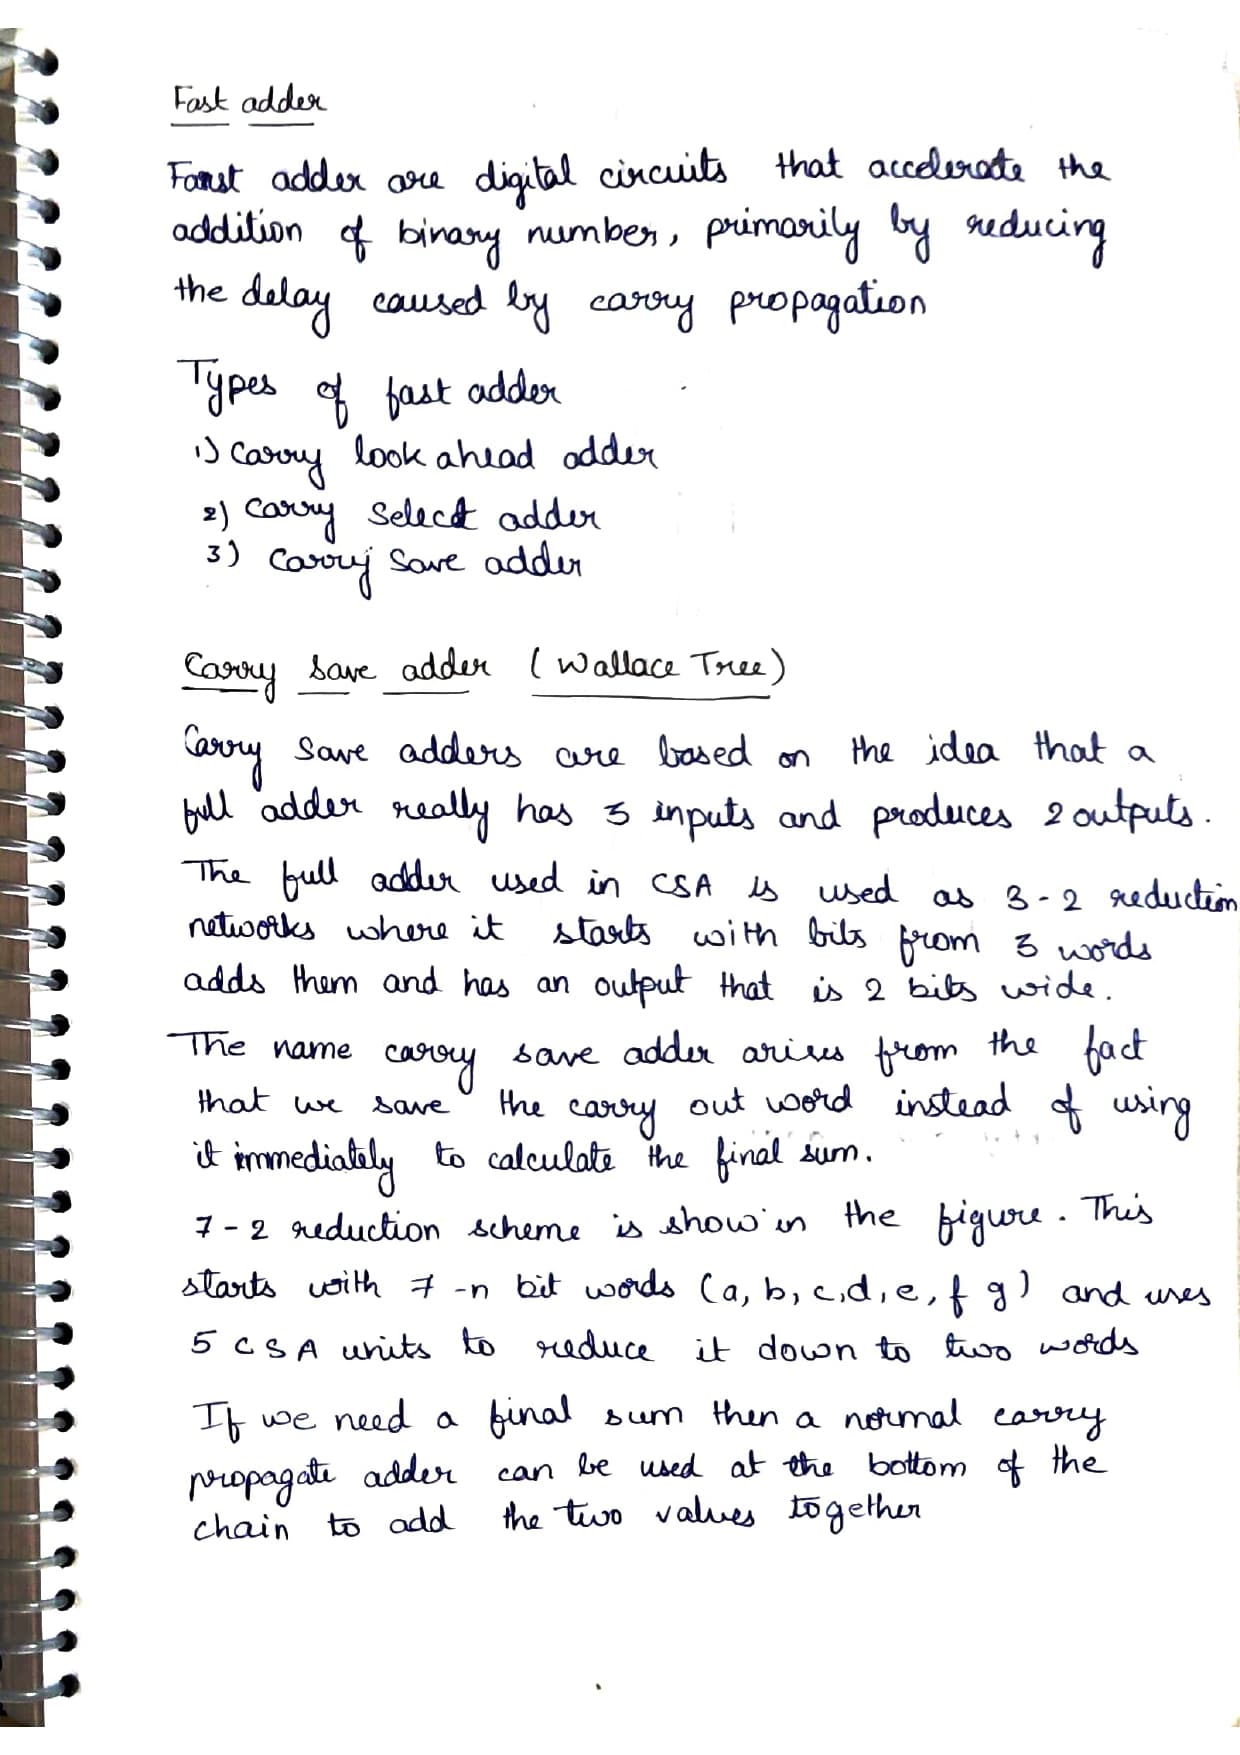 Fast adder
Fast adder are digital circuits that accelerate the
addition of binary number, primarily by reducing
the delay caused by carry propagation
Types of fast adder
1) Carry look ahead adder
2) Carry Select adder
3) Carry Save adder
Carry save adder (Wallace Tree)
Carry Save adders are based on the idea that a
full adder really has 3 inputs and produces 2 outputs.
The full adder used in CSA is used as 3-2 reduction
networks where it starts with bits from 3 words
adds them and has an output that is 2 bits wide.
The name carry save adder arises from the fact
that we save the carry out word instead of using
it immediately to calculate the final sum.
7-2 reduction scheme is show in the figure. This
starts with 7-n bit words (a, b, c, d, e, f g) and uses
5 CSA units to reduce it down to two words
If we need a final sum then a normal carry
propagate adder can be used at the bottom of the
chain to add the two values together